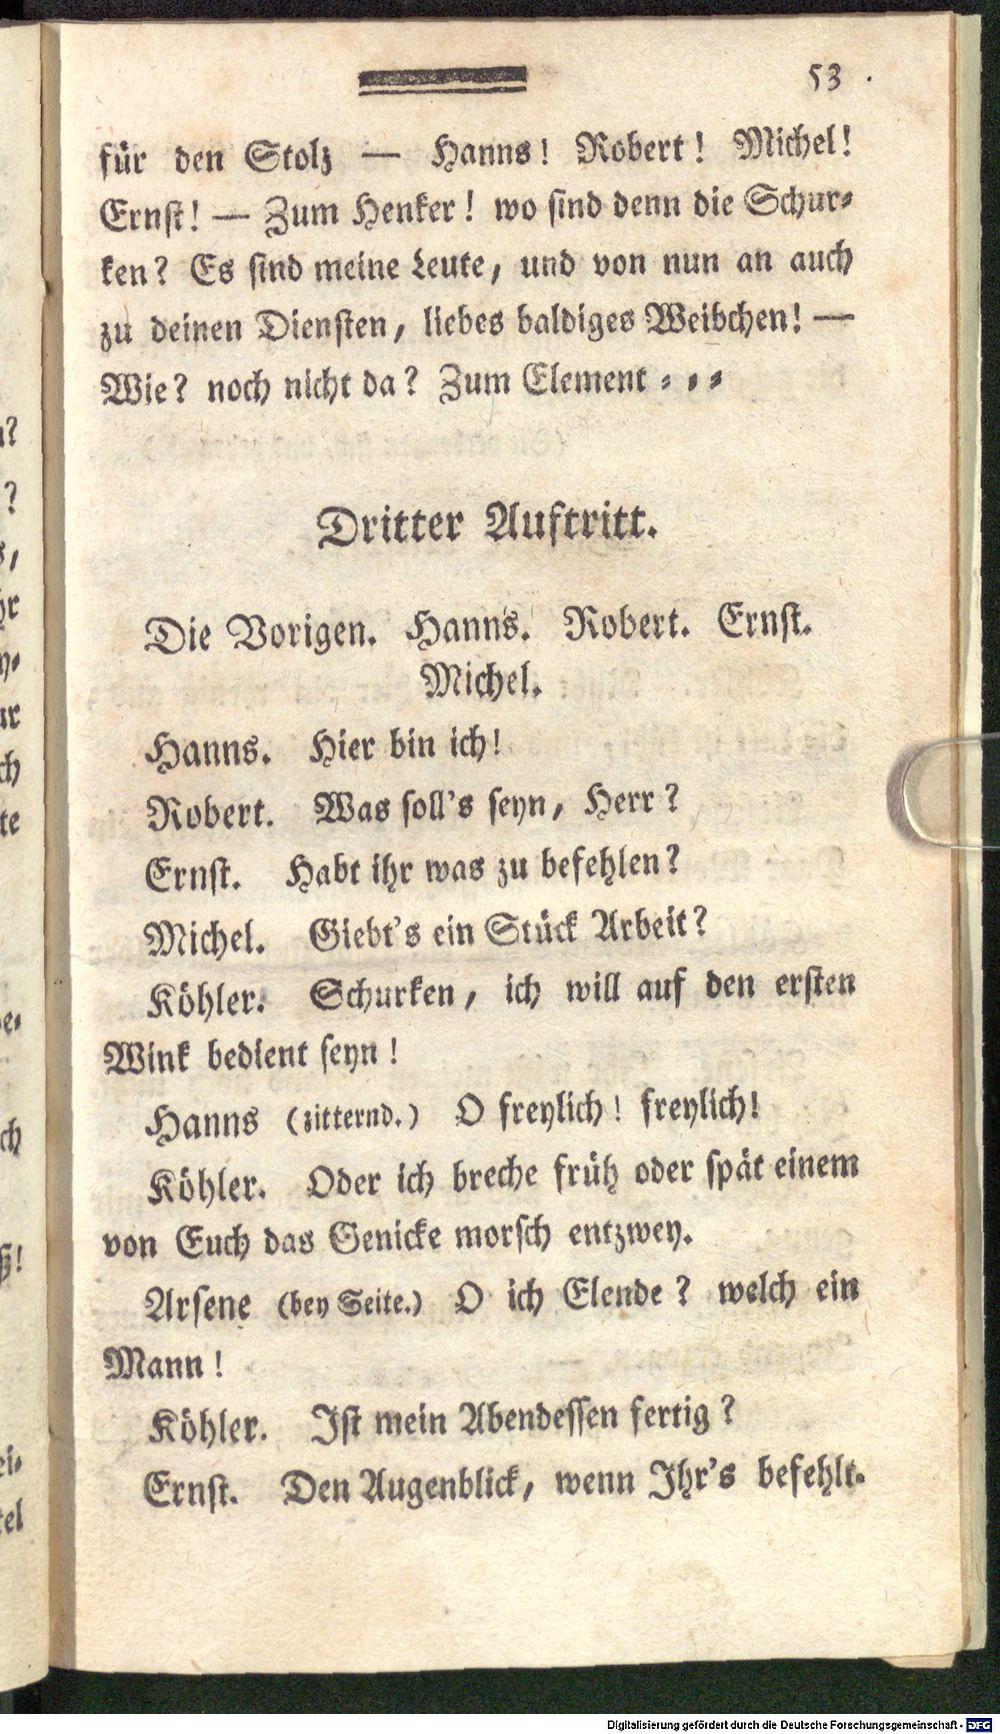 53
für den Stolz — Hanns! Robert! Michel!
Ernst! — Zum Henker! wo sind denn die Schur⸗
ken? Es sind meine Leute, und von nun an auch
zu deinen Diensten, liebes baldiges Weibchen! —
Wie? noch nicht da? Zum Element ⸗ ⸗ ⸗
Dritter Auftritt.
Die Vorigen. Hanns. Robert. Ernst.
Michel.
Hanns. Hier bin ich!
Robert. Was soll's seyn, Herr?
Ernst. Habt ihr was zu befehlen?
Michel. Giebt's ein Stück Arbeit?
Köhler. Schurken, ich will auf den ersten
Wink bedient seyn!
Hanns (zitternd.) O freylich! freylich!
Köhler. Oder ich breche früh oder spät einem
von Euch das Genicke morsch entzwey.
Arsene (bey Seite.) O ich Elende? welch ein
Mann!
Köhler. Ist mein Abendessen fertig?
Ernst. Den Augenblick, wenn Ihr's befehlt.
Digitalisierung gefördert durch die Deutsche Forschungsgemeinschaft - DFG